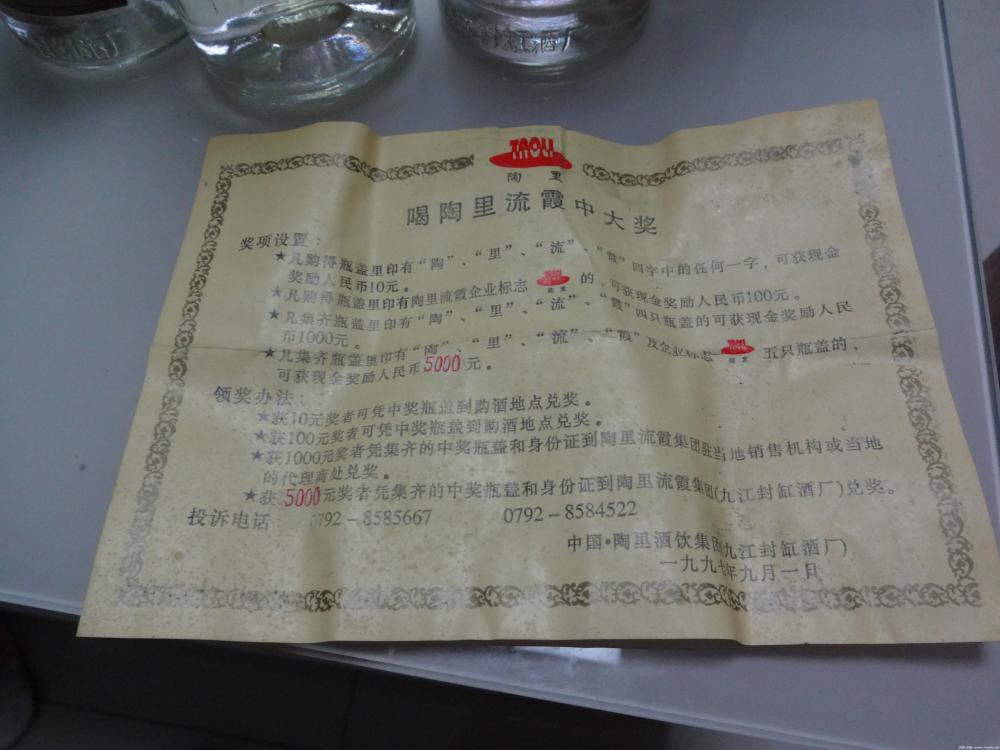 缸酒厂
TAOLI
陶里
喝陶里流霞中大奖
奖项设置：
★凡购得瓶盖里印有“陶”、“里”、“流”、“霞”四字中的任何一字，可获现金
奖励人民币10元。
★凡购得瓶盖里印有陶里流霞企业标志 TAOLI 陶里 的，可获现金奖励人民币100元。
★凡集齐瓶盖里印有“陶”、“里”、“流”、“霞”四只瓶盖的可获现金奖励人民
币1000元。
★凡集齐瓶盖里印有“陶”、“里”、“流”、“霞”及企业标志 TAOLI 陶里 五只瓶盖的，
可获现金奖励人民币5000元。
领奖办法：
★获10元奖者可凭中奖瓶盖到购酒地点兑奖。
★获100元奖者可凭中奖瓶盖到购酒地点兑奖。
★获1000元奖者凭集齐的中奖瓶盖和身份证到陶里流霞集团驻当地销售机构或当地
的代理商处兑奖。
★获5000元奖者凭集齐的中奖瓶盖和身份证到陶里流霞集团(九江封缸酒厂)兑奖。
投诉电话 0792-8585667 0792-8584522
中国·陶里酒饮集团(九江封缸酒厂)
一九九七年九月一日